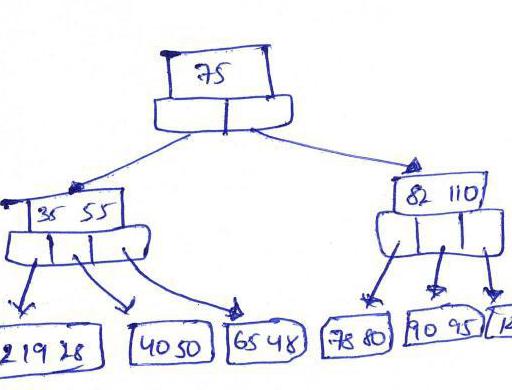 75
35 55
82 110
2 19 28
40 50
65 48
78 80
90 95